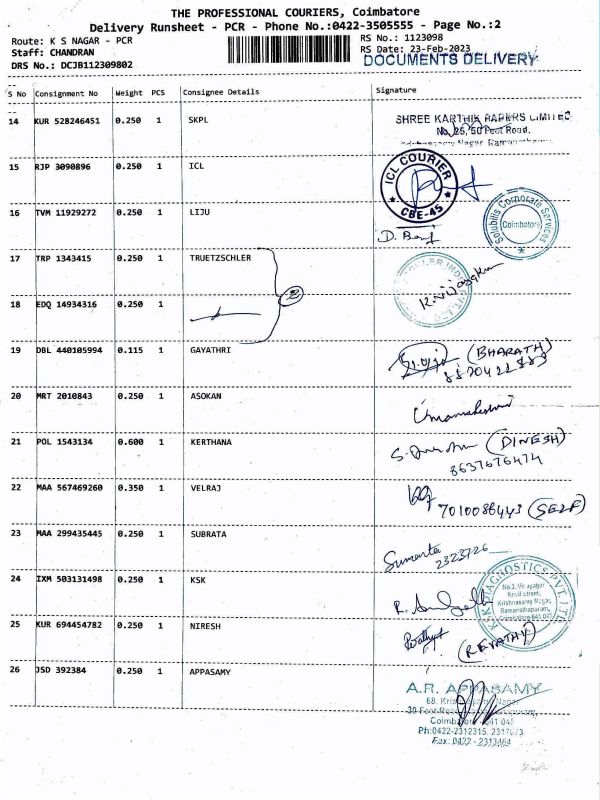 THE PROFESSIONAL COURIERS, Coimbatore
Delivery Runsheet - PCR - Phone No.:0422-3505555 - Page No.:2
Route: K S NAGAR - PCR
RS No.: 1123098
Staff: CHANDRAN
RS Date: 23-Feb-2023
DRS No.: DCJB112309802
DOCUMENTS DELIVERY
S No Consignment No Weight PCS Consignee Details Signature
14 KUR 528246451 0.250 1 SKPL
SHREE KARTHIK PAPERS LIMITED
No. 25, 50 Feet Road,
Nagar Ramanathapuram
15 RJP 3090896 0.250 1 ICL
ICL COURIER
CBE-45
16 TVM 11929272 0.250 1 LIJU
Solubilis Corporate Services
Coimbatore
17 TRP 1343415 0.250 1 TRUETZSCHLER
2
18 EDQ 14934316 0.250 1
19 DBL 440105994 0.115 1 GAYATHRI
(BHARATH)
20 MRT 2010843 0.250 1 ASOKAN
Umamaheswari
21 POL 1543134 0.600 1 KERTHANA
(DINESH)
8637676474
22 MAA 567469260 0.350 1 VELRAJ
7010086443 (SELF)
23 MAA 299435445 0.250 1 SUBRATA
Sumanta
2323726
24 IXM 503131498 0.250 1 KSK
KSK DIAGNOSTICS PVT. LTD
Krishnasamy Nagar,
Ramanathapuram,
Coimbatore-641 045
25 KUR 694454782 0.250 1 NIRESH
(REVATHY)
26 JSD 392384 0.250 1 APPASAMY
A.R. APPASAMY
68, Krishnasamy Nagar
Coimbatore - 641 045
Ph:0422-2312315,
Fax: 0422 - 2313464